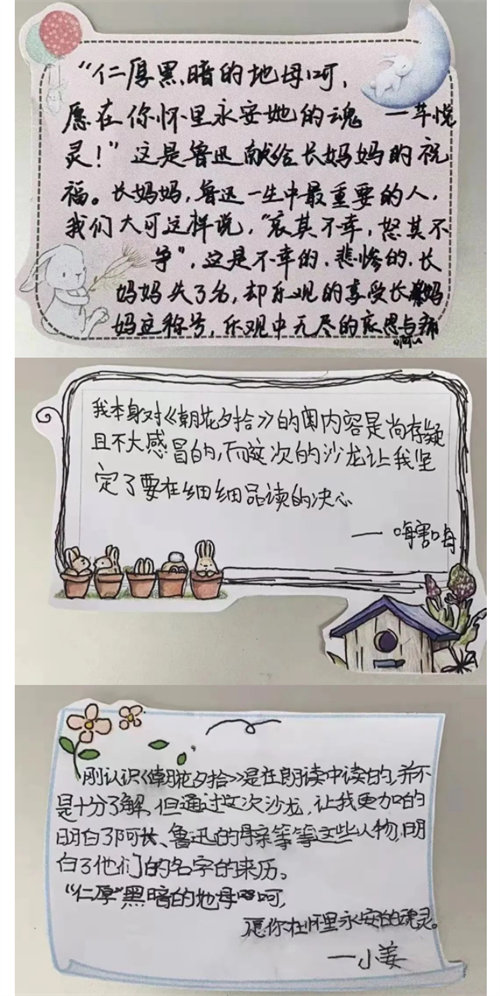 “仁厚黑暗的地母呵，
愿在你怀里永安她的魂 一草悦
灵！”这是鲁迅献给长妈妈的祝
福。长妈妈，鲁迅一生中最重要的人，
我们大可这样说，“哀其不幸，怒其不
争”，这是不幸的、悲惨的，长
妈妈失了名，却乐观的享受长妈
妈这称号，乐观中无尽的哀思与痛
我本身对《朝花夕拾》的内容是尚存疑
且不大感冒的，而这次的沙龙让我坚
定了要在细细品读的决心
一嗨害嗨
刚认识《朝花夕拾》是在朗读中读的，并不
是十分了解，但通过这次沙龙，让我更加的
明白了阿长、鲁迅的母亲等等这些人物，明
白了他们的名字的来历。
“仁厚”黑暗的地母呵，
愿你在怀里永安的魂灵。
一小姜